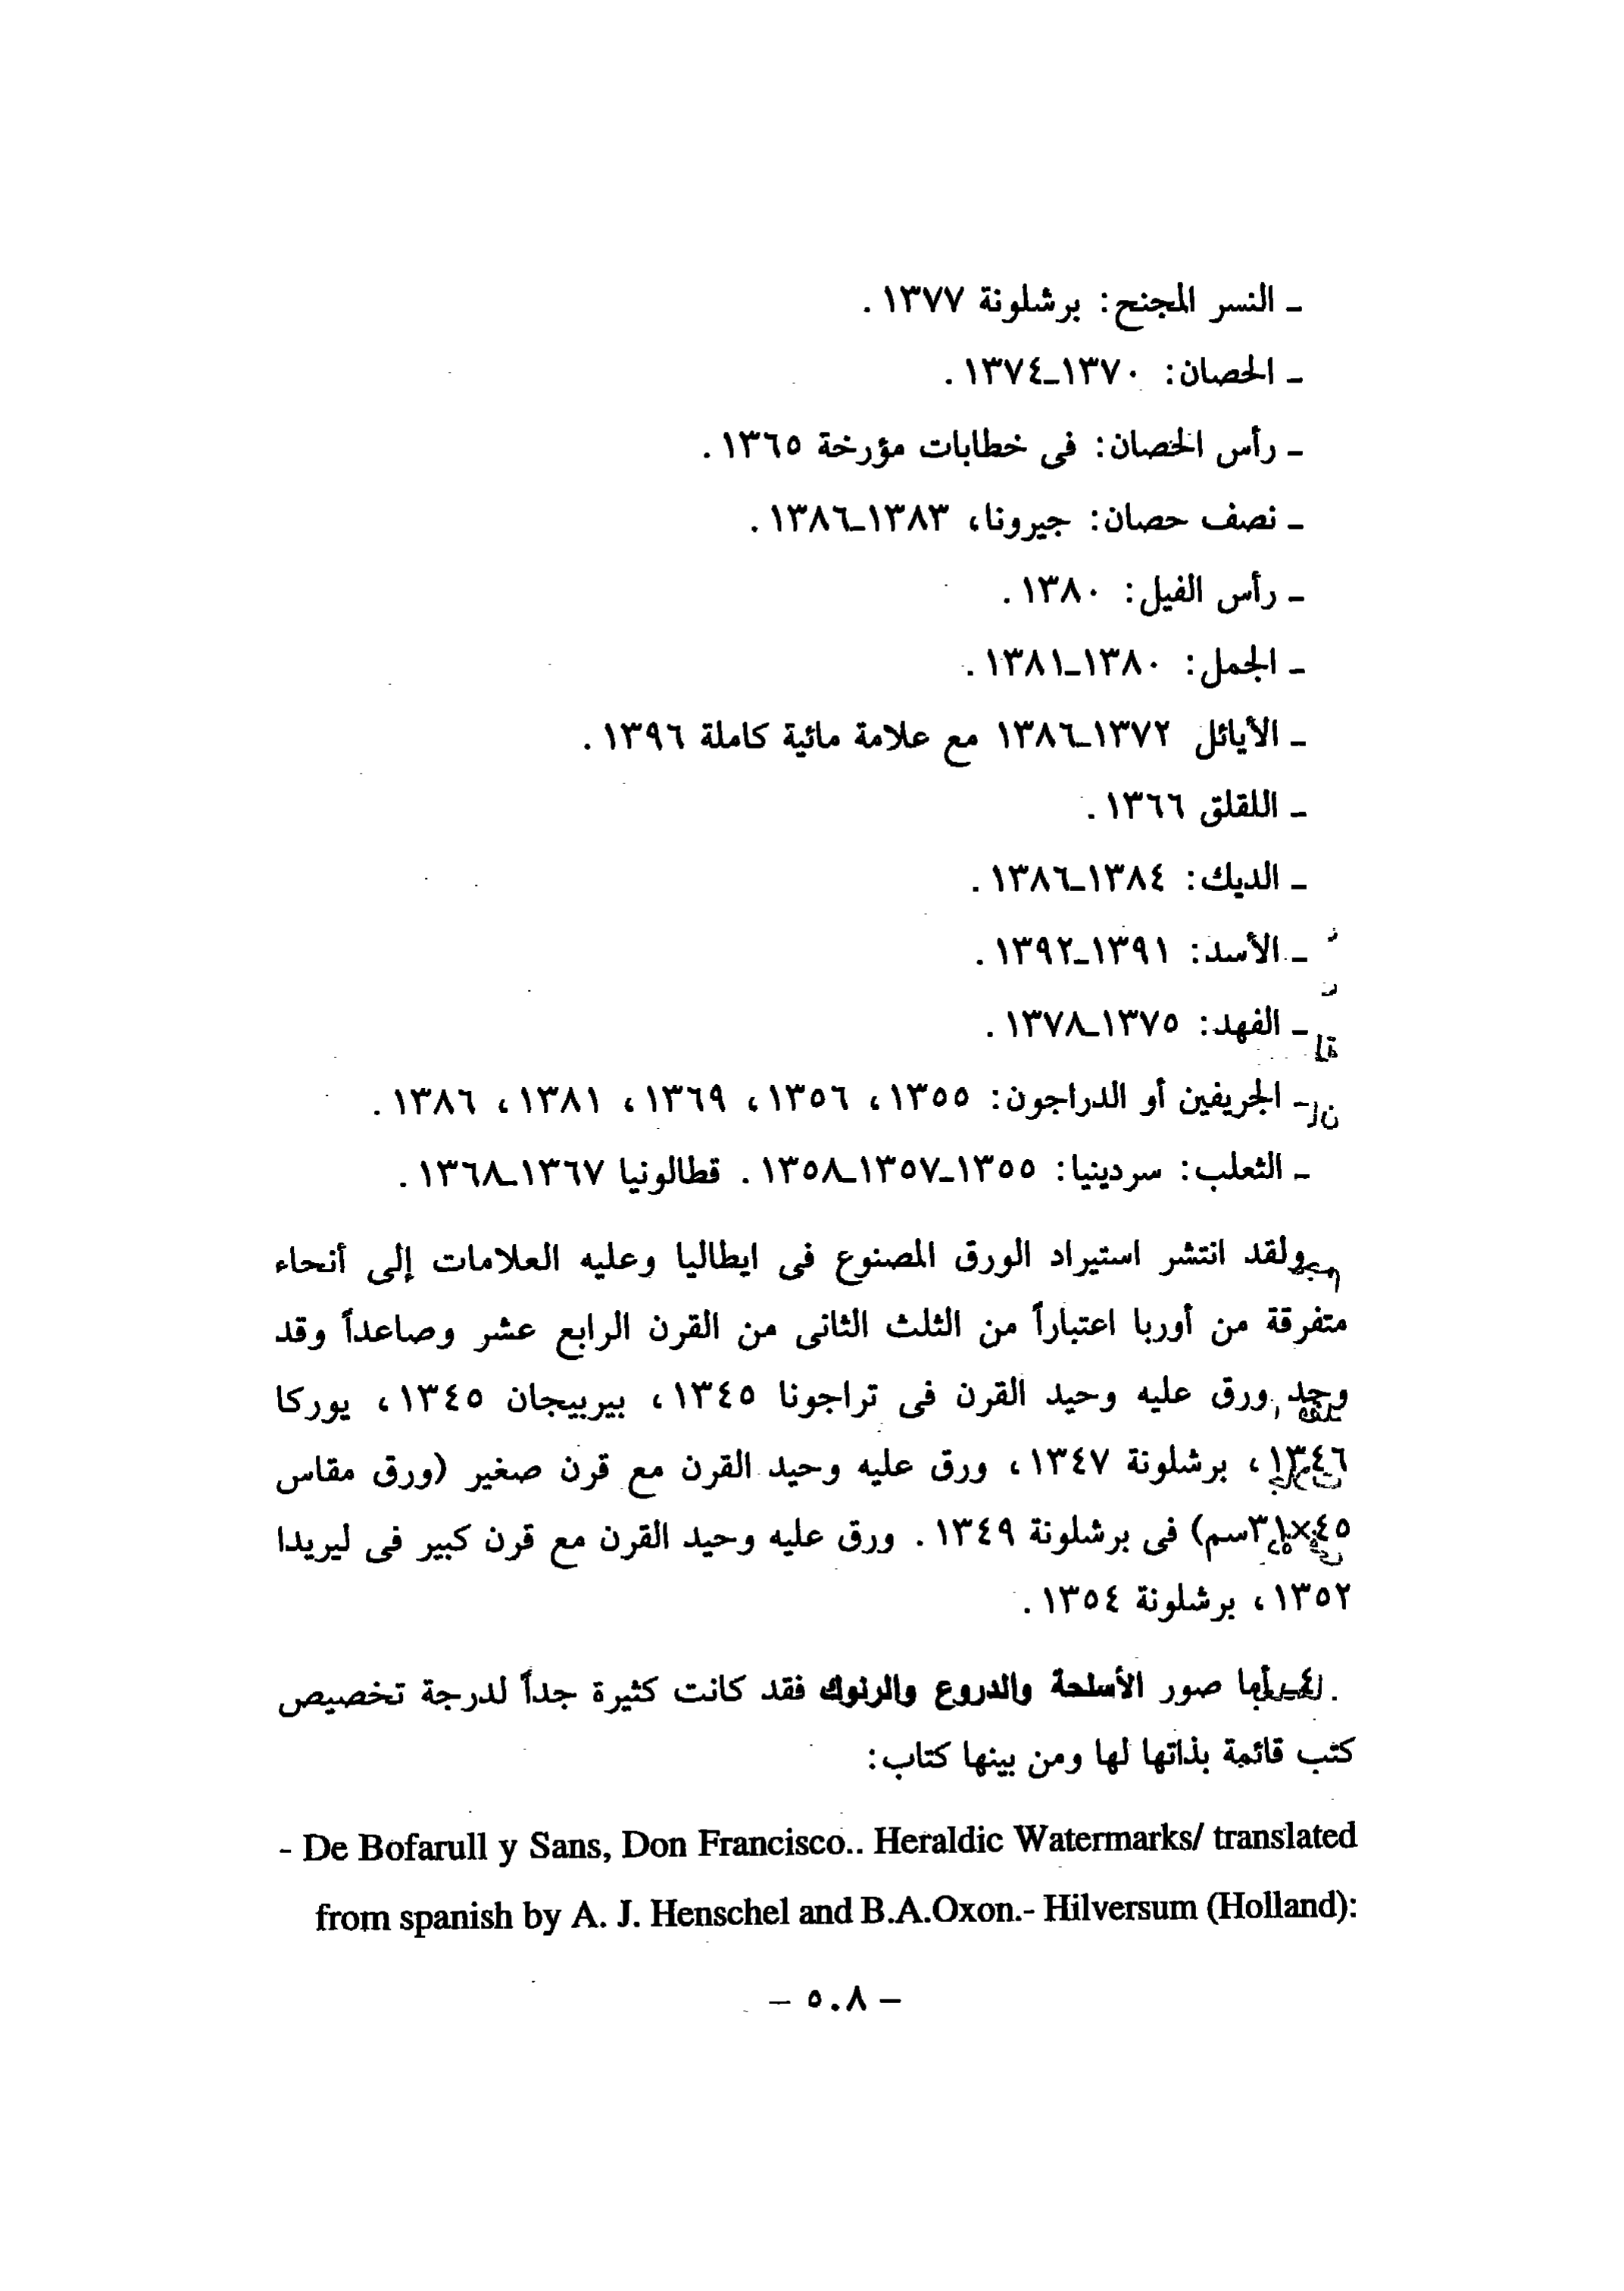 ـ النسر المجنح: برشلونة ١٣٧٧.
ـ الحصان: ١٣٧٠ـ١٣٧٤.
ـ رأس الحصان: فى خطابات مؤرخة ١٣٦٥.
ـ نصف حصان: جيرونا، ١٣٨٣ـ١٣٨٦.
ـ رأس الفيل: ١٣٨٠.
ـ الجمل: ١٣٨٠ـ١٣٨١.
ـ الأيائل ١٣٧٢ـ١٣٨٦ مع علامة مائية كاملة ١٣٩٦.
ـ اللقلق ١٣٦٦.
ـ الديك: ١٣٨٤ـ١٣٨٦.
ـ الأسد: ١٣٩١ـ١٣٩٢.
ـ الفهد: ١٣٧٥ـ١٣٧٨.
ـ الجريفين أو الدراجون: ١٣٥٥، ١٣٥٦، ١٣٦٩، ١٣٨١، ١٣٨٦.
ـ الثعلب: سردينيا: ١٣٥٥ـ١٣٥٧ـ١٣٥٨. قطالونيا ١٣٦٧ـ١٣٦٨.
ولقد انتشر استيراد الورق المصنوع فى ايطاليا وعليه العلامات إلى أنحاء
متفرقة من أوربا اعتباراً من الثلث الثانى من القرن الرابع عشر وصاعداً وقد
وجد ورق عليه وحيد القرن فى تراجونا ١٣٤٥، بيربيجان ١٣٤٥، يوركا
١٣٤٦، برشلونة ١٣٤٧، ورق عليه وحيد القرن مع قرن صغير (ورق مقاس
٤٥×٣١سم) فى برشلونة ١٣٤٩. ورق عليه وحيد القرن مع قرن كبير فى ليريدا
١٣٥٢، برشلونة ١٣٥٤.
٤ـ أما صور الأسلحة والدروع والرنوك فقد كانت كثيرة جداً لدرجة تخصيص
كتب قائمة بذاتها لها ومن بينها كتاب:
- De Bofarull y Sans, Don Francisco.. Heraldic Watermarks/ translated
from spanish by A. J. Henschel and B.A.Oxon.- Hilversum (Holland):
– ٥٠٨ –